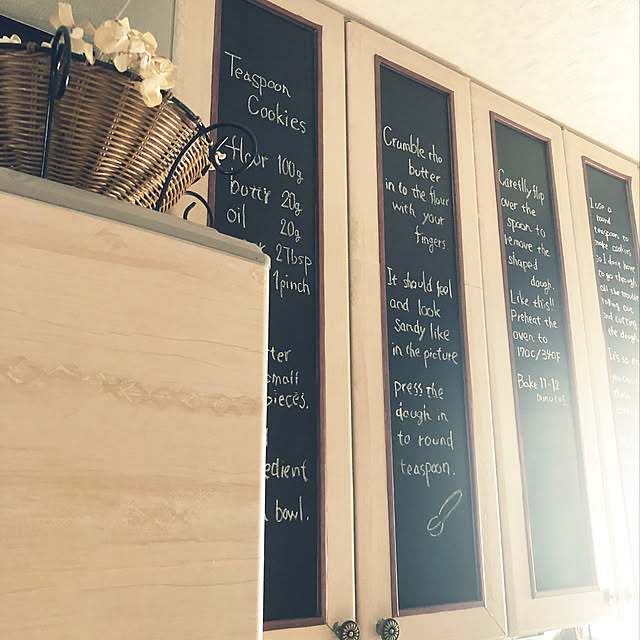 Teaspoon
Cookies
flour 100g
butter 20g
oil 20g
2Tbsp
1pinch
small
pieces.
bowl.
Crumble the
butter
in to the flour
with your
fingers
It should feel
and look
Sandy like
in the picture
press the
dough in
to round
teaspoon.
Carefully flip
over the
spoon to
remove the
shaped
dough.
Like this!!
Preheat the
oven to
170C/340F
Bake 11-12
minutes.
I use a
round
teaspoon to
make cookies
so I dont have
to go through
all the trouble
rolling out
and cutting
the dough.
It's so
you can